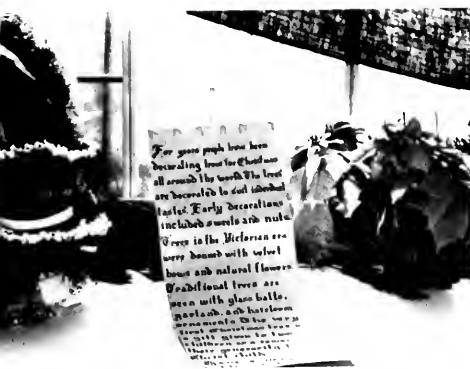 For years people have been
decorating trees for Christmas
all around the world The trees
are decorated to suit individual
tastes. Early decorations
included sweets and nuts
Trees in the Victorian era
were donned with velvet
bows and natural flowers
Traditional trees are
seen with glass balls,
garland, and heirloom
ornaments The very
first Christmas tree
a gift given to
children